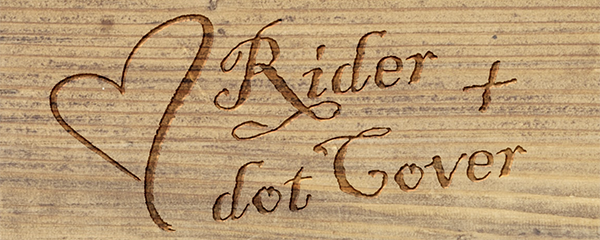 Rider +
dotCover